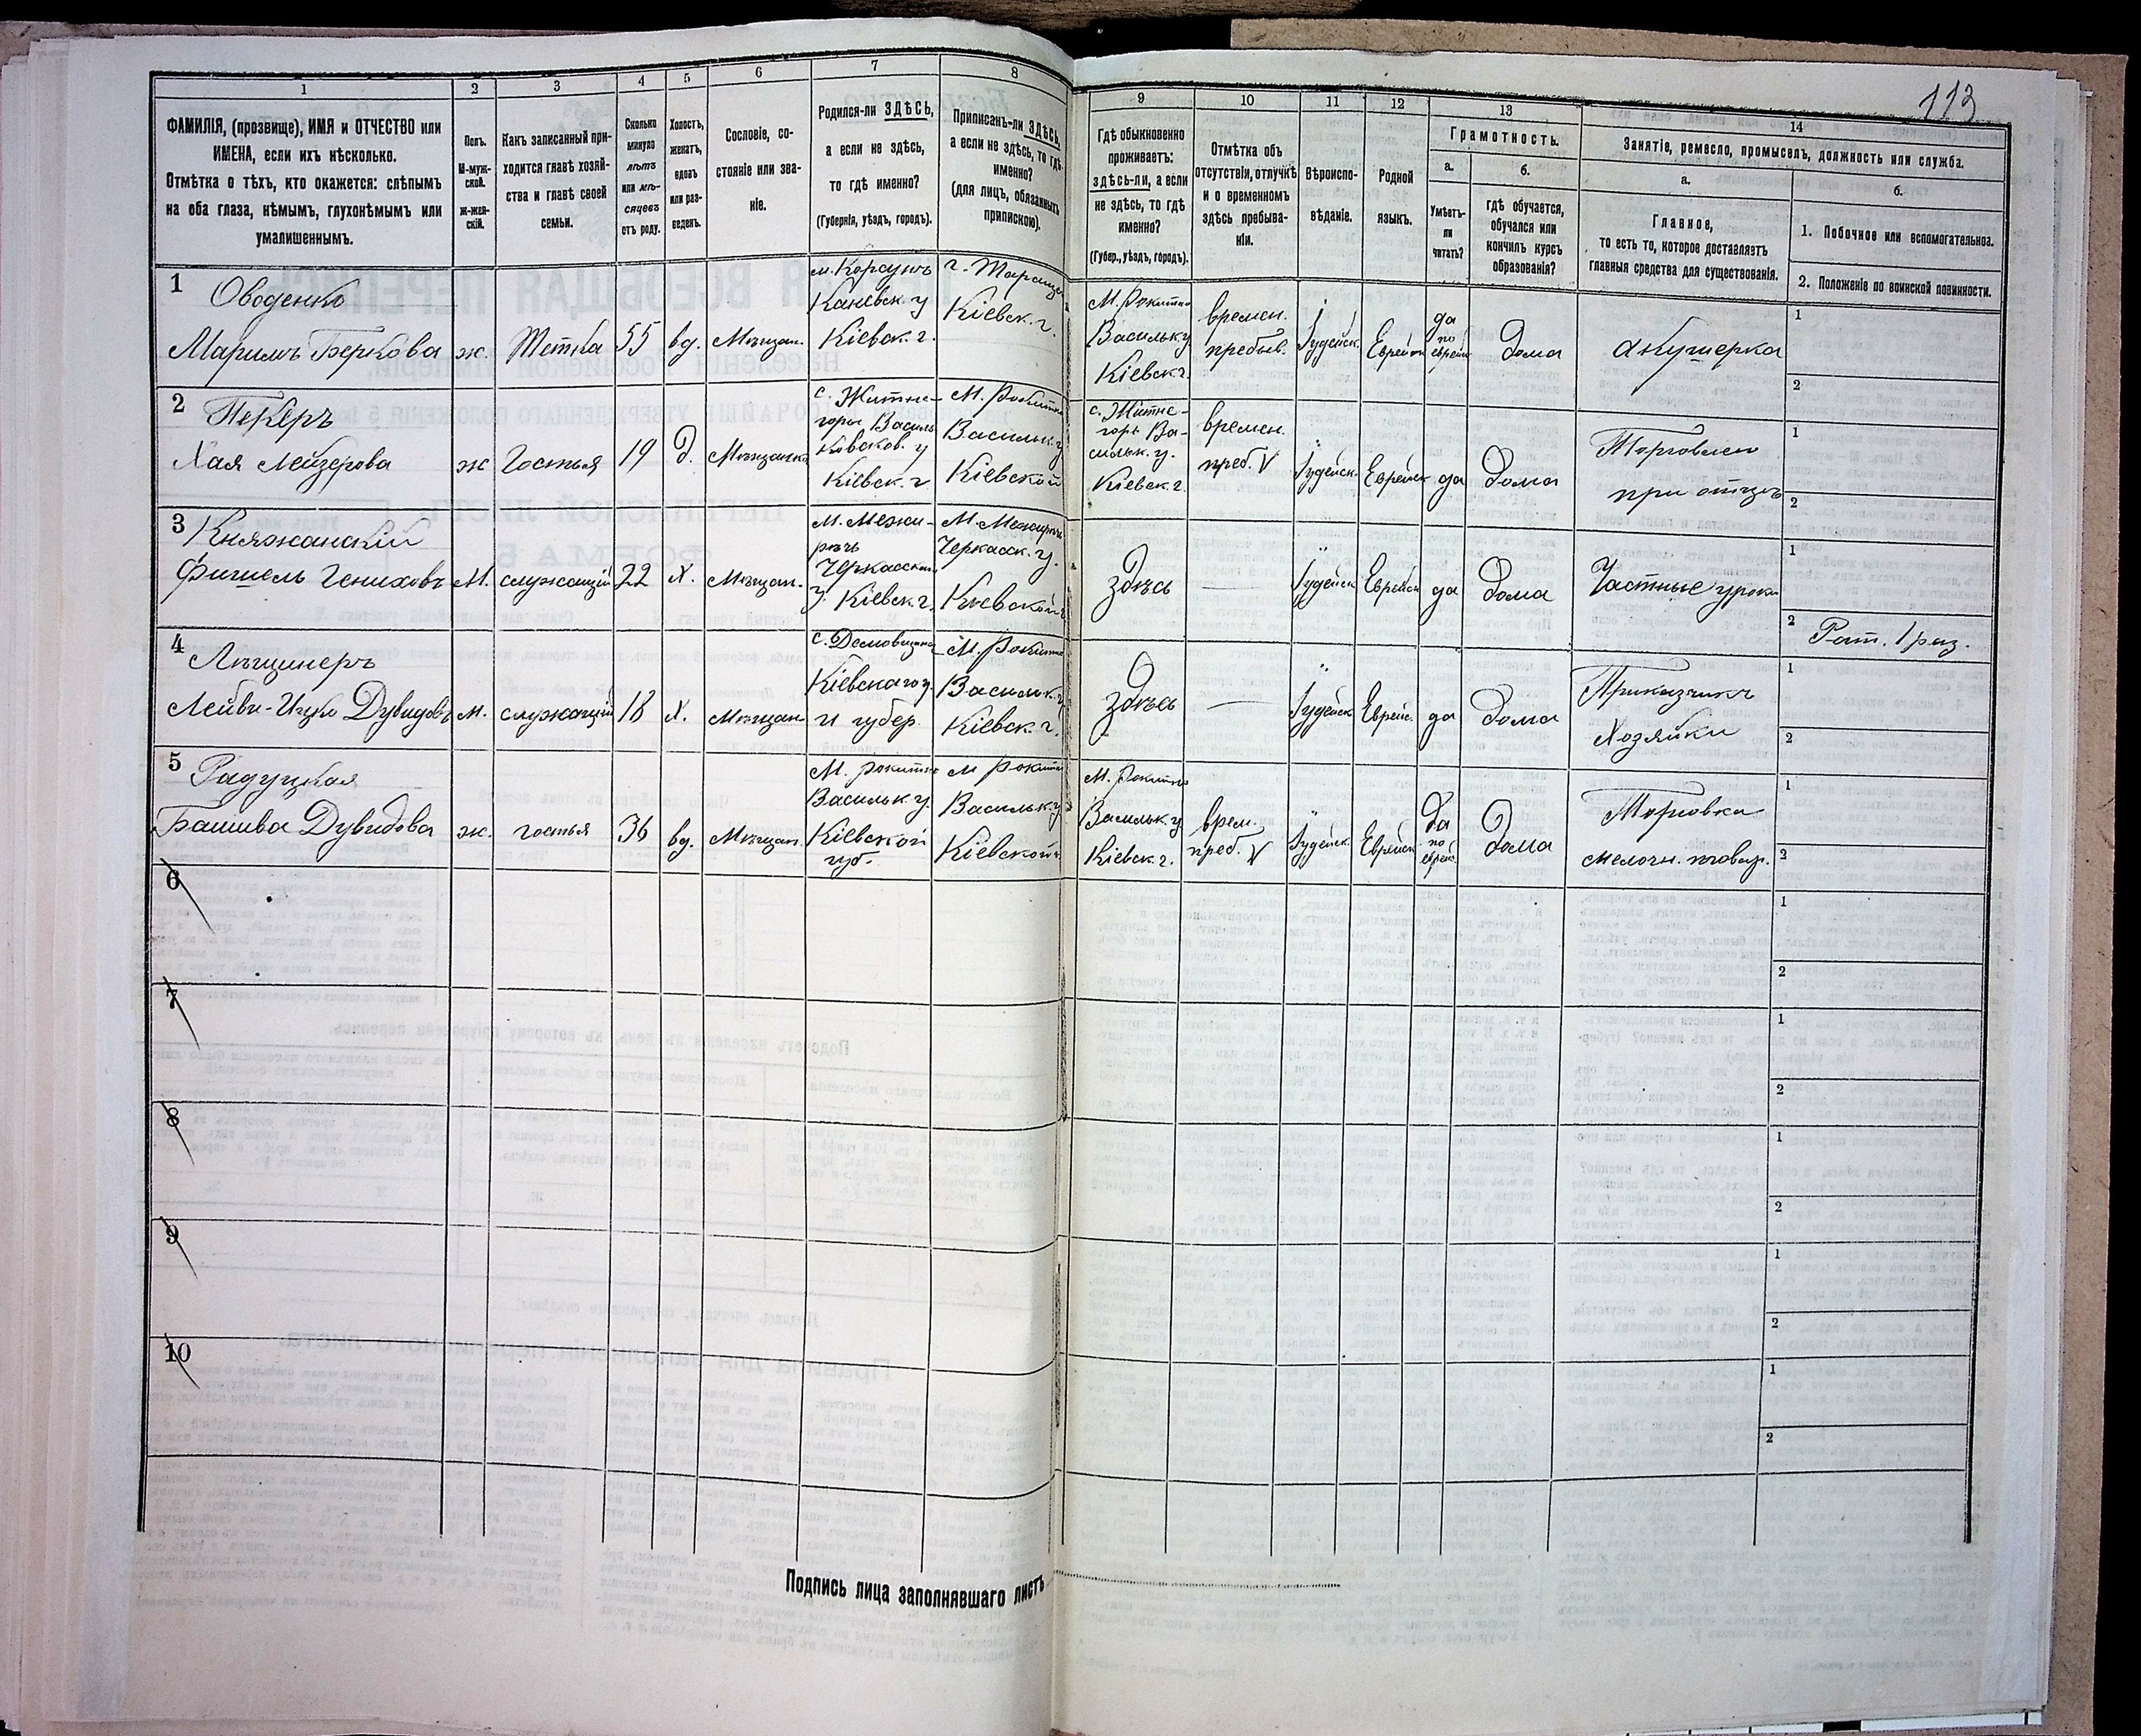 113
1
2
3
4
5
6
7
8
9
10
11
12
13
14
ФАМИЛІЯ, (прозвище), ИМЯ и ОТЧЕСТВО или
ИМЕНА, если ихъ нѣсколько.
Отмѣтка о тѣхъ, кто окажется: слѣпымъ
на оба глаза, нѣмымъ, глухонѣмымъ или
умалишеннымъ.
Полъ.
М-муж-
ской.
ж-жен-
скій.
Какъ записанный при-
ходится главѣ хозяй-
ства и главѣ своей
семьи.
Сколько
минуло
лѣтъ
или мѣ-
сяцевъ
отъ роду.
Холостъ,
женатъ,
вдовъ
или раз-
веденъ.
Сословіе, со-
стояніе или зва-
ніе.
Родился-ли ЗДѢСЬ,
а если не здѣсь,
то гдѣ именно?
(Губернія, уѣздъ, городъ).
Приписанъ-ли ЗДѢСЬ,
а если не здѣсь, то гдѣ
именно?
(для лицъ, обязанныхъ
припискою).
Гдѣ обыкновенно
проживаетъ:
здѣсь-ли, а если
не здѣсь, то гдѣ
именно?
(Губер., уѣздъ, городъ).
Отмѣтка объ
отсутствіи, отлучкѣ
и о временномъ
здѣсь пребыва-
ніи.
Вѣроиспо-
вѣданіе.
Родной
языкъ.
Грамотность.
а.
Умѣетъ-
ли
читать?
б.
гдѣ обучается,
обучался или
кончилъ курсъ
образованія?
Занятіе, ремесло, промыселъ, должность или служба.
а.
Главное,
то есть то, которое доставляетъ
главныя средства для существованія.
б.
1. Побочное или вспомогательное.
2. Положеніе по воинской повинности.
1
Оводенко
Маримъ Беркова
ж.
Тетка
55
вд.
Мѣщан.
м. Корсунь
Каневск. у
Кіевск. г.
г. Тараща
Кіевск. г.
М. Рокитно
Васильк. у
Кіевск г.
времен.
пребыв.
Іудейск.
Еврейск
да
по
еврейс
Дома
Акушерка
1
2
2
Пекеръ
Хая Лейзерова
ж
Гостья
19
д.
Мѣщанка
с. Житне-
горы Василь
ковсков. у
Кіевск. г
М. Рокитно
Васильк. у
Кіевской
с. Житне-
горы Ва-
сильк. у.
Кіевск г.
времен.
преб. V
Іудейск.
Еврейск
да
Дома
Торговлей
при отцѣ
1
2
3
Княжанскій
Фишель Гениховъ
М.
служащій
22
Х.
Мѣщан.
М. Межи-
рѣчъ
Черкасскаго
у. Кіевск г.
М. Межирѣчъ
Черкасск. у.
Кіевской
здѣсь
—
Іудейск
Еврейск
да
Дома
Частные уроки
1
2 Рат. 1 раз.
4
Лѣщинеръ
Лейви-Ицко Дувидовъ
М.
служащій
18
Х.
Мѣщан.
Кіевскаго у.
и губер.
М. Рокитно
Васильк. у
Кіевск. г.
здѣсь
—
Іудейск
Еврейс.
да
Дома
Приказчикъ
Хозяйки
1
2
5
Радуцкая
Башива Дувидова
ж.
гостья
36
вд.
Мѣщан.
М. Рокитно
Васильк у.
Кіевской
губ.
М Рокитно
Васильк. у
Кіевской
М. Рокитно
Васильк. у
Кіевск г.
врем.
преб. V
Іудейск.
Еврейск
Да
по
еврейс.
Дома
Торговка
мелочн. товар.
1
2
6
1
2
7
1
2
8
1
2
9
1
2
10
1
2
Подпись лица заполнявшаго листъ